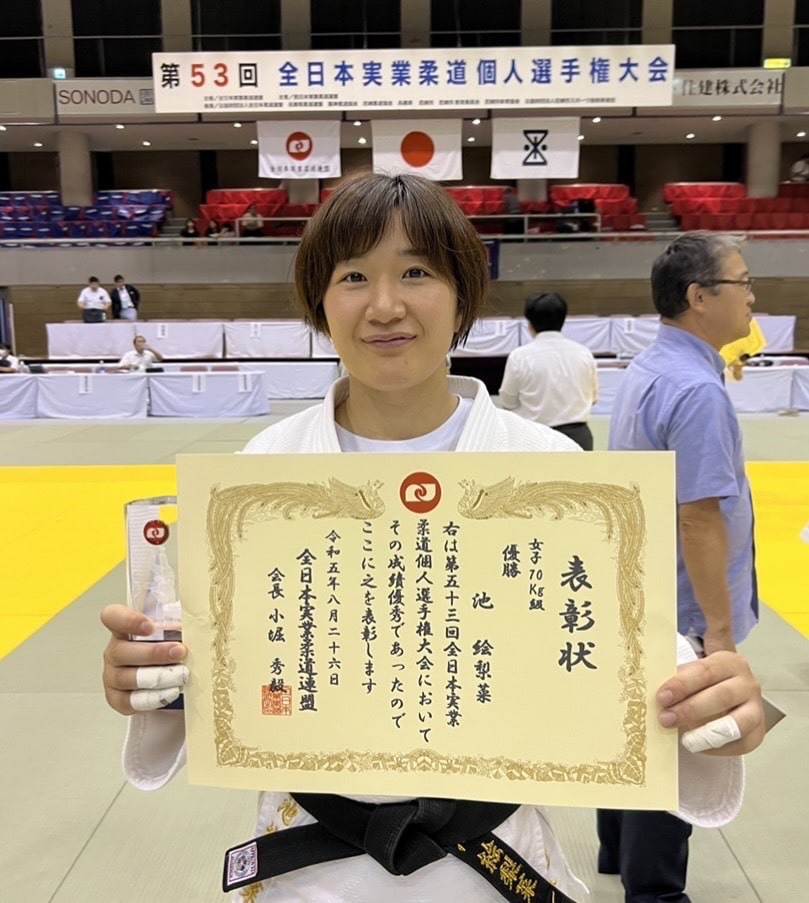 第53回 全日本実業柔道個人選手権大会
SONODA
住建株式会社
全日本実業柔道連盟
表彰状
女子70Kg級
優勝
池 絵梨菜
右は第五十三回全日本実業
柔道個人選手権大会において
その成績優秀であったので
ここに之を表彰します
令和五年八月二十六日
全日本実業柔道連盟
会長 小堀 秀毅
絵梨菜